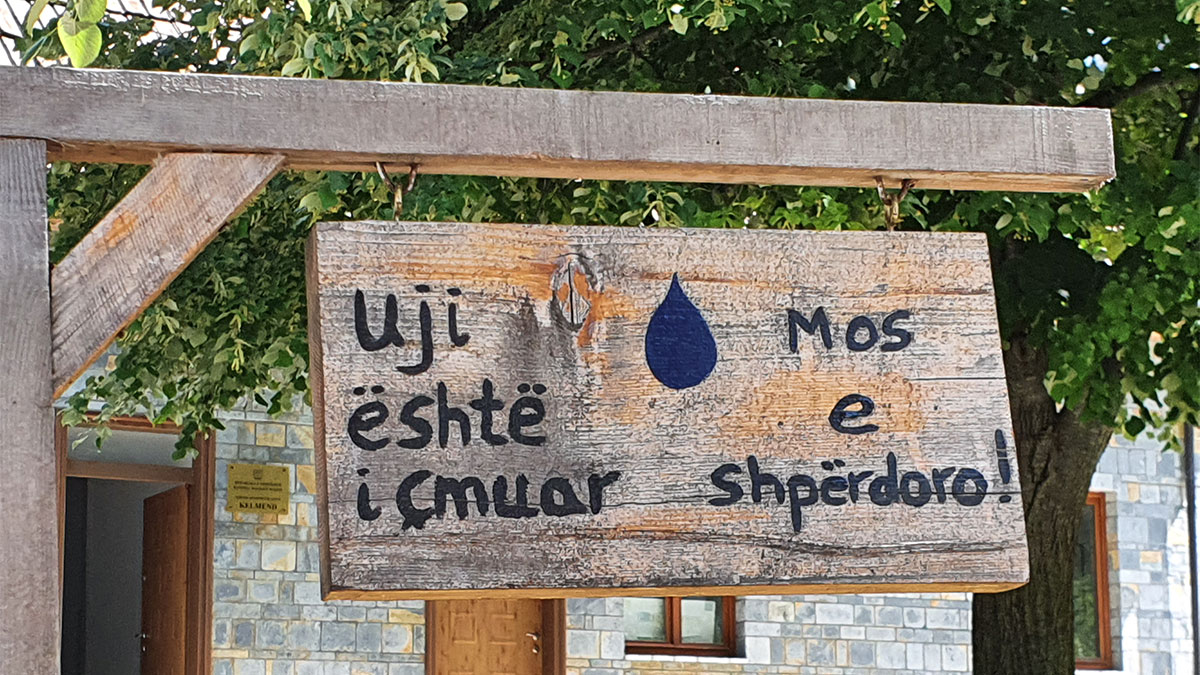 Uji
është
i çmuar
Mos
e
Shpërdoro!
KELMEND